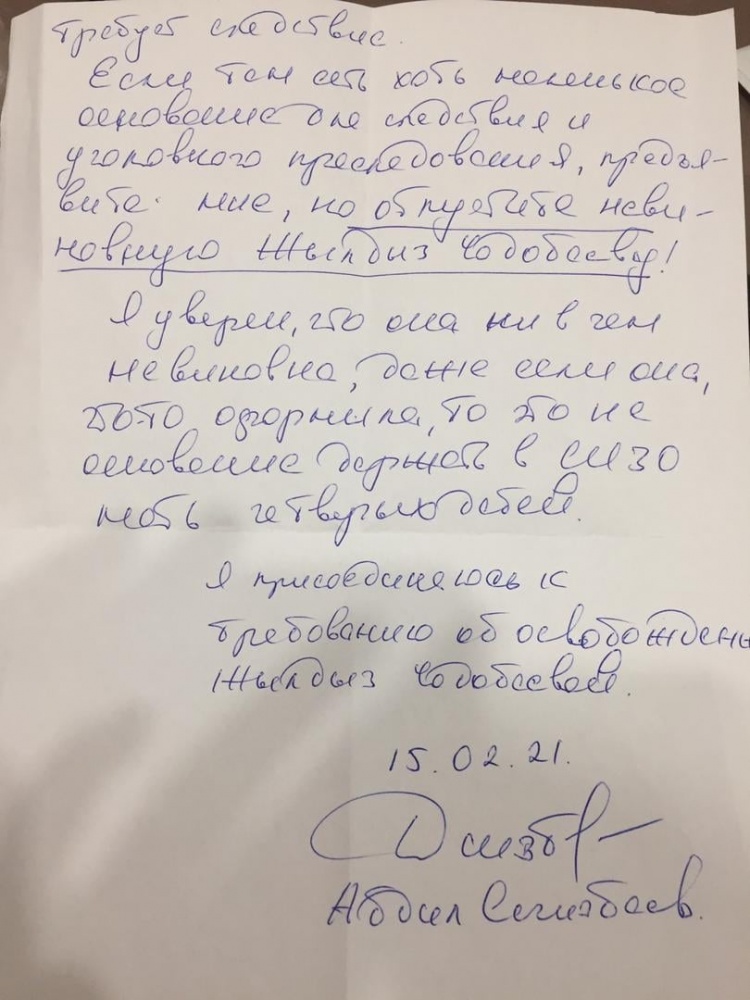 требует следствие.
Если там есть хоть маленькое
основание для следствия и
уголовного преследования, предъя-
вите мне, но отпустите неви-
новную Жылдыз Чодобаеву!
Я уверен, что она ни в чем
не виновна, даже если она,
что-то оформила, то это не
основание держать в СИЗО
мать четверых детей.
Я присоединяюсь к
требованию об освобождень
Жылдыз Чодобаевой.
15.02.21.
Абдил Сегизбаев.